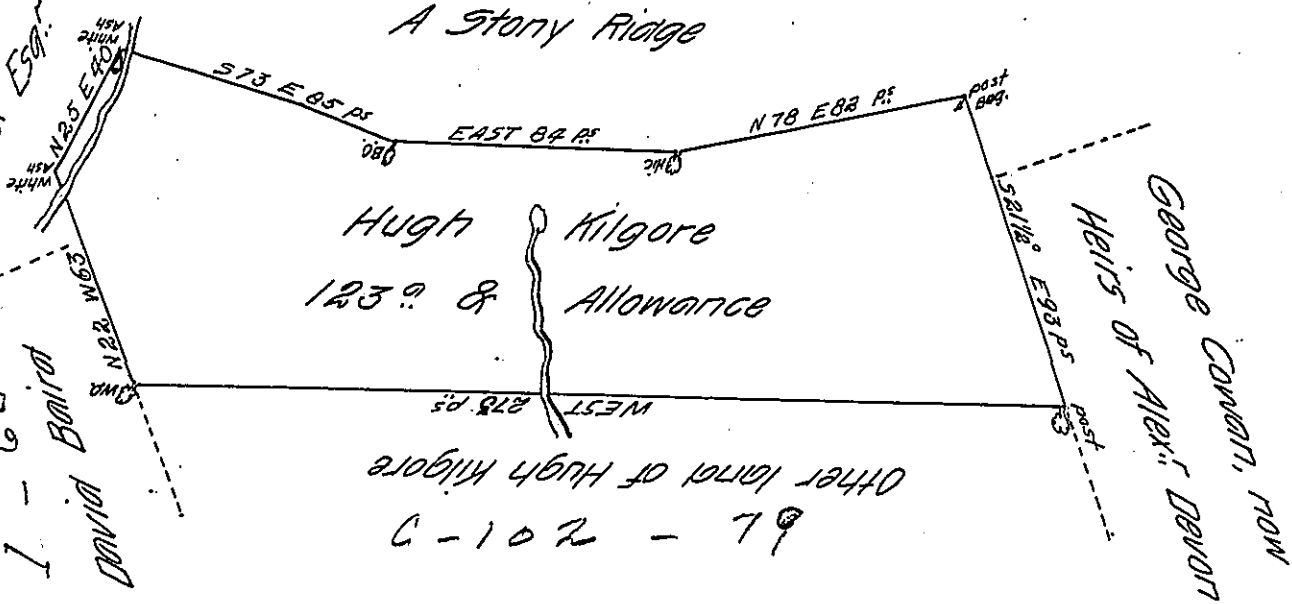 A Stony Ridge
Esqr.
White Ash
N25 E40
White Ash
S73 E 85 ps
BO
EAST 84 ps
Hic
N 78 E82 ps
post Beg.
S21½° E 93 ps
post
George Cowan, now
Heirs of Alexr. Devon
Hugh Kilgore
123a & Allowance
N22 W63
WO
WEST 275 ps
Other land of Hugh Kilgore
David Baird
C-102 - 79